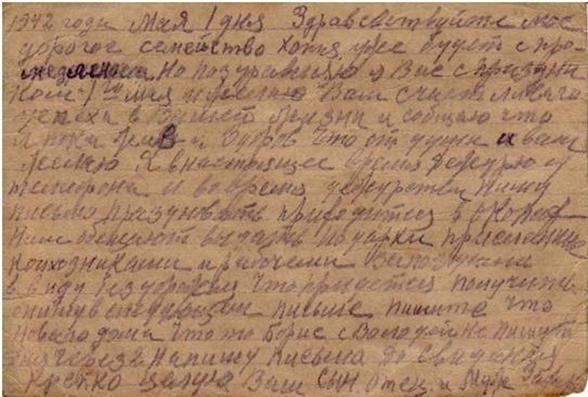 1942 года Мая 1 дня Здравсвствуйте мое
дорогое семейство хотя уже будет с про
медлением Но поздравляю я Вас с праздни
ком 1го мая и желаю Вам счастливаго
успеха в Вашей жизни и сообщаю что
Я пока жив и Здоров что от души и вам
желаю Я внастоящее время дежурю у
телефона и во время дежурства пишу
письмо праздновать приходится в окопах
Нам обещают выдать подарки присланные
колхозниками и рабочими
в виду что придется получить
опишу вследующем письме пишите что
Нового дома что то Борис с Володей Не пишут
дня через 2 Напишу письмо До свидания
Крепко целую Ваш сын отец и